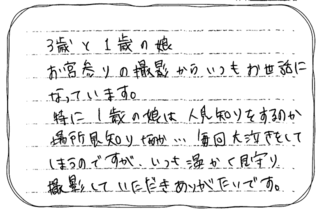 3歳と1歳の娘
お宮参りの撮影からいつもお世話に
なっています。
特に1歳の娘は人見知りをするのか
場所見知りなのか…毎回大泣きをして
しまうのですが、いつも温かく見守り
撮影していただきありがたいです。